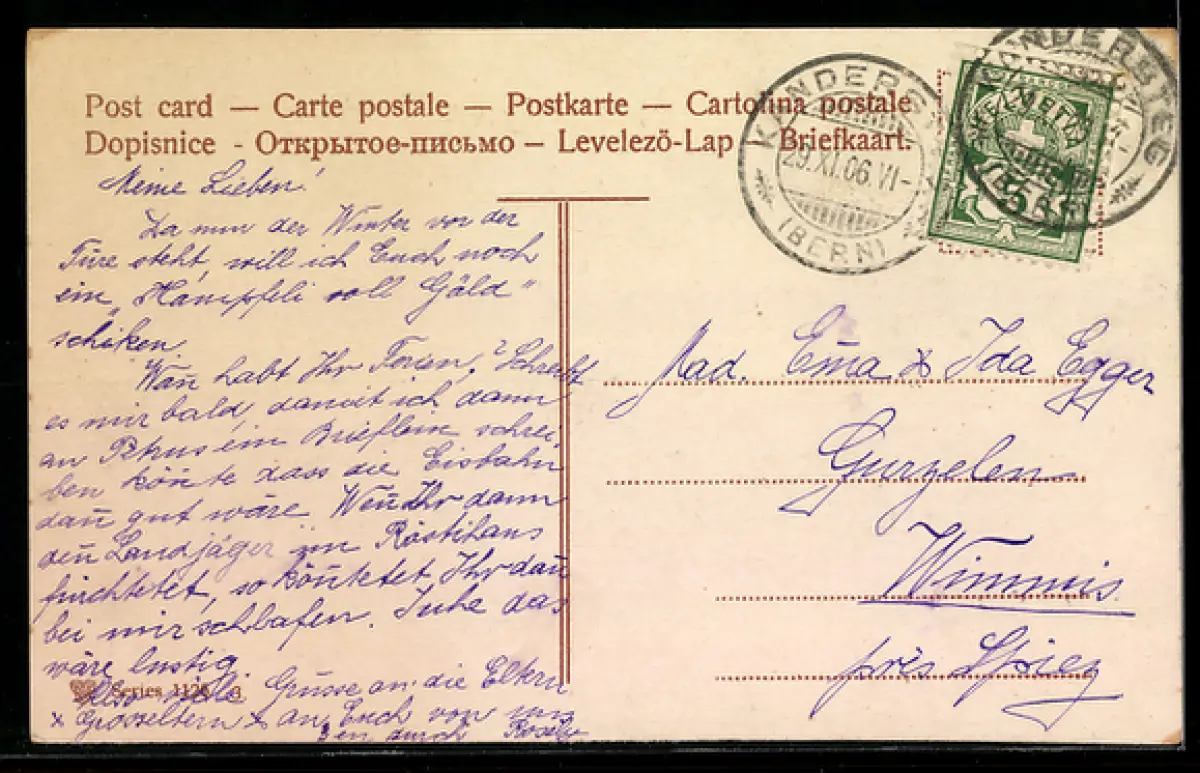 Post card — Carte postale — Postkarte — Cartolina postale
Dopisnice - Открытое-письмо – Levelező-Lap – Briefkaart.
KANDERSTEG
29.XI.06.VI-
(BERN)
KANDERSTEG
HELVETIA
5
Meine Lieben!
Da nun der Winter vor der
Türe steht, will ich Euch noch
ein „Hampfeli voll Gäld"
schiken.
Wañ habt Ihr Ferien? Schreibt
es mir bald, damit ich dann
an Petrus ein Brieflein schrei-
ben köñte dass die Eisbahn
dañ gut wäre. Weñ Ihr dann
den Landjäger im Röstihaus
fürchtetet, so köñtetet Ihr dañ
bei mir schlafen. Juhe das
wäre lustig.
Also viele Grüsse an die Eltern
x Grosseltern x an Euch von
durch Rosette
Series 1126
Mad. Em̄a & Ida Egger
Gurzelen
Wimmis
près Spiez